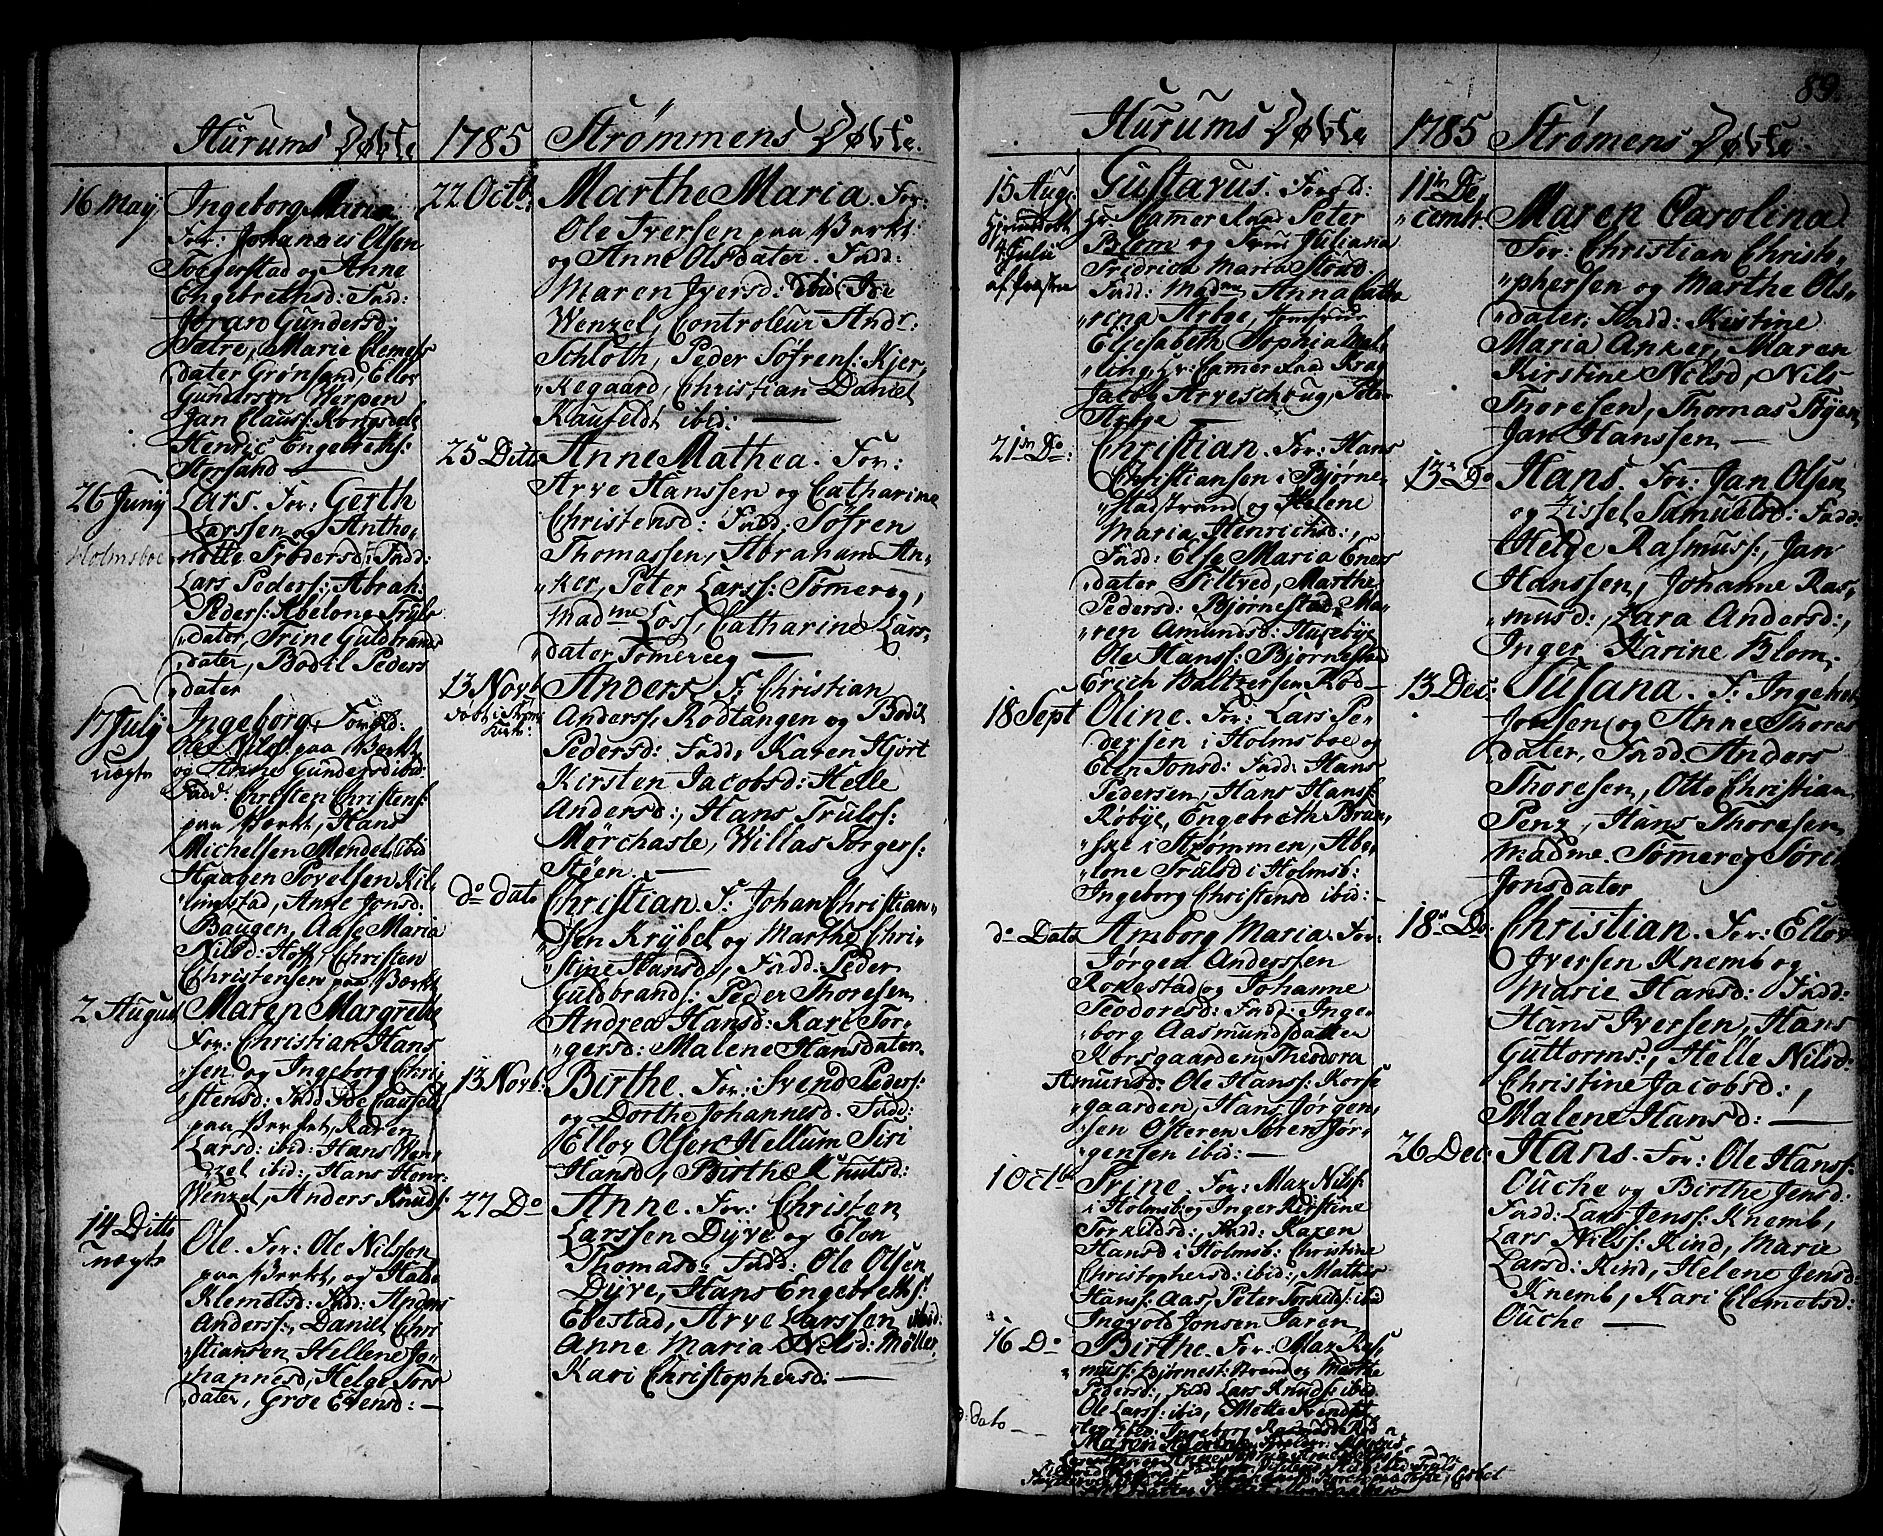 Hurums Døbte
16 May
Ingeborg Maria
For: Johannes Olsen
Toggerstad og Anne
Engebrethsd: Fadd:
Joran Gundersd:
Sætre, Marie Clemets
dater Grønsand, Ellov
Gundersen Verpen
Jan Clauss: Kongsdel
Henric Engebreths:
Storsand —
26 Junij
Holmsboe
Lars. For: Gerth
Larssen og Antho
"nette Trodersd: Fadd:
Lars Peders: Abrah:
Peders: Abelone Truls
"dater, Trine Guldbrands
"dater, Bodil Peders
"dater
17 July
uægte
Ingeborg. Forold:
Ole Nils: paa Værkt
og Anne Gundersd ibid:
Fadd: Christen Christens:
paa Værkt, Hans
Michelsen Mendel ibid
Haagen Povelsen Kil
"lingstad, Anne Jonsd:
Baugen, Aase Maria
Nilsd: Hoff, Christen
Christensen paa Værkt
2 August
Maren Margrethe
For: Christian Hans
"sen og Ingeborg Chri
"stensd: Fadd Ide Caufeldt
paa Verket, Karen
Larsd: ibid: Hans Wen
"zel ibid:, Hans Henr:
Wenzel, Anders Knuds:
14 Ditto
uægte
Ole. For: Ole Nilssen
paa Værkt, og Hale
Klemetsd: Fadd: Anders
Anderss:, Daniel Chri
"stiansen Hellene Jo"
"hannesd, Helge Tors
dater, Groe Evensd: —
1785
Strømmens Døbte.
22 Octb:
Marthe Maria. For:
Ole Iversen paa Værkt:
og Anne Olsdater. Fadd:
Maren Iversd: ibid: Ide
Wenzel, Controleur Andr:
Schloth, Peder Søfrens: Kjer,
"kegaard, Christian Daniel
Kaufeldt ibid: —
25 Ditto
Anne Mathea. For:
Arve Hanssen og Catharine
Christensd: Fadd: Søfren
Thomassen, Abraham An,
"ker, Peter Larss: Tømereg,
Madme Loss, Catharine Lars,
"dater Tømereeg —
13 Novb
døbt i Strøm:
Kirke:
Anders. F: Christian
Anderss, Rødtangen og Bodil
Pedersd: Fadd, Karen Hjort
Kirsten Jacobsd: Helle
Andersd:, Hans Trulss:
Mørchaste, Willas Torgers:
Støen. —
do dato
Christian. F: Johan Christian"
"sen Krybel og Marthe Chri,
"stine Hansd:, Fadd: Peder
Guldbrands: Peder Thoresen
Andrea Hansd: Kari Tor,
"gersd: Malene Hansdater.
13 Novb:
Birthe. For: Svend Peders:
og Dorthe Johannesd. Fadd:
Ellov Olsen Hellum Siri
Hansd, Birthe Knutsd:
27 Do
Anne. For: Christen
Larssen Dyve og Elen
Thomasd: Fadd: Ole Olsen
Dyve, Hans Engebreths:
Ebestad, Arve Larssen ibid:
Anne Maria Nilsd: Møller,
Kari Christophersd: —
Hurums Døbte
15 Aug:
Hjemdøbt
4 Julii
af Præsten
Gustavus. Forold:
Hr Camer Raad Peter
Blom og Frue Juliana
Fridrica Maria Stoud
Fadd: Madme Anna Catha
"rina Arboe,
Elisabeth Sophia Mel
ling, Hr: Camer Raad Krag
Jacob Arveschoug, Peter
Arboe —
21de Do:
Christian. For: Hans
Christiansen i Bjørne
"stadstrand og Helene
Maria Henrichsd:,
Fadd: Else Maria Eners
"dater Tiltved, Marthe
Pedersd: Bjørnestad, Ma,
"ren Amundsd: Husebye
Ole Hanss: Bjørnestad
Erich Baltzersen Rød —
18 Sept
Oline. For: Lars Pe"
dersen i Holmsboe og
Elen Jonsd: Fadd: Hans
Pedersen, Hans Hanss:
Røbye, Engebreth Bran,
"ske i Strømmen, Abe,
"lone Trulsd i Holmsb:
Ingeborg Christensd ibid: —
do Dato
Amborg Maria. For:
Jørgen Anderssen
Rokestad og Johanne
Teodoresd: Fadd: Inge"
borg Aasmundsdatter
Korsgaarden, Theodora
Amunsd: Ole Hanss: Korse
"gaarden, Hans Jørgen,
"sen Østeren Søren Jør,
"gensen ibid: —
1 Octb
Trine. For: Max Nilss:
i Holmsb: og Inger Kirstine
Torkildsd:, Fadd: Karen
Hansd i Holmsb: Christine
Christophersd: ibid:, Mathis
Hanss: Aas, Peter Torkilss: ibid
Ingvold Jonsen Saren —
16 Do
Birthe. For: Max Ras"
"muss: Bjørnest: Strand og Marthe
Pedersd:, Fadd Lars Knuds: ibid
Ole Larss: ibid, Mette Svendsd
d: dato —
1785
89.
Strømens Døbte.
11te De
"cembr:
Maren Carolina
For: Christian Christo,
"phersen og Marthe Ols,
"dater, Fadd: Kistine
Maria Anker, Maren
Kirstine Nilsd, Nils
Thoresen, Thomas Styen
Jan Hanssen —
13de Do
Hans. For: Jan Olsen
og Zissel Samuelsd: Fadd:
Helge Rasmuss:, Jan
Hanssen, Johanne Ras,
"musd:, Zara Andersd:,
Inger Karine Blom,
13 Dec:
Susana. F: Ingebret
Jonsen og Anne Thores
"dater, Fadd: Anders
Thoresen, Otto Christian
Penz, Hans Thoresen,
Madme. Tømereg Søri
Jonsdater
18de Do:
Christian. For: Ellov
Iversen Knemb og
Marie Hansd: Fadd:
Hans Iversen, Hans
Guttorms:, Helle Nilsd:
Christine Jacobsd:,
Malene Hansd: —
26 Dec:
Hans. For: Ole Hanss:
Ouche og Birthe Jensd:
Fadd: Lars Jenss: Knemb,
Lars Nilss: Kind, Marie
Larsd: Kind, Helene Jensd:
Knemb, Kari Clemetsd:
Ouche —